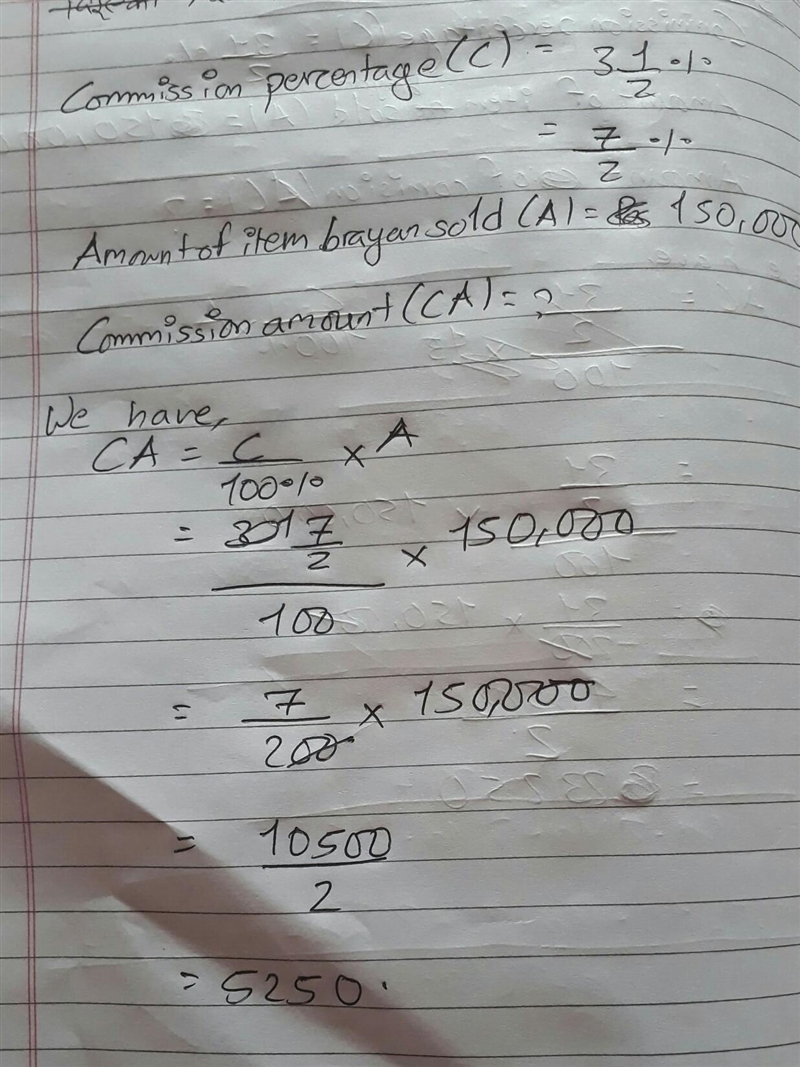 Commission percentage (C) = 3 1/2 %
= 7/2 %
Amount of item brayan sold (A) = 150,000
Commission amount (CA) = ?
We have,
CA = C/100% × A
= 7/2 / 100 × 150,000
= 7/200 × 150,000
= 10500/2
= 5250.